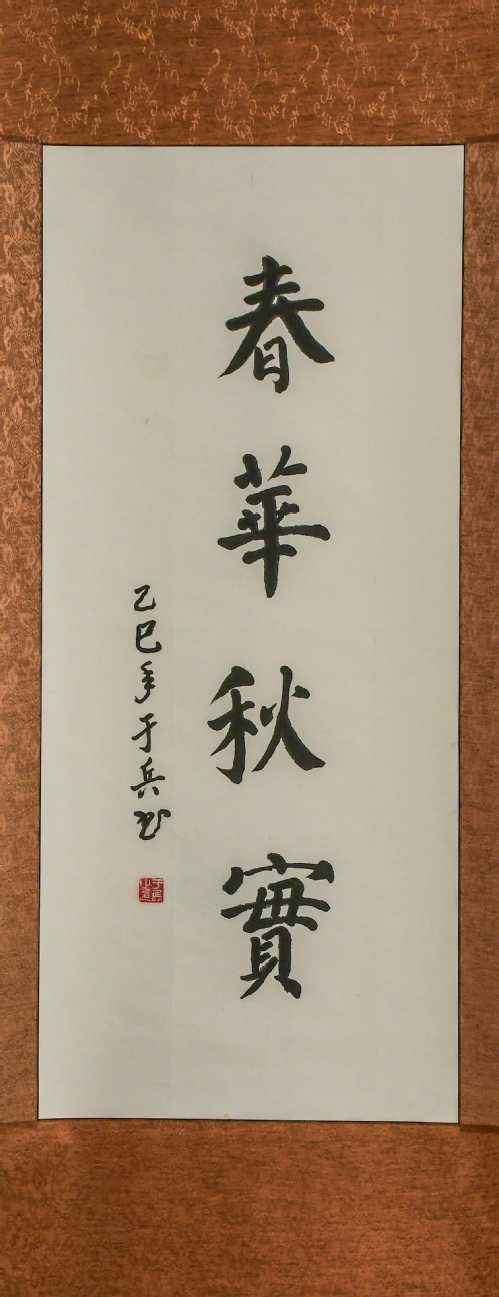 春華秋實
乙巳年于兵书